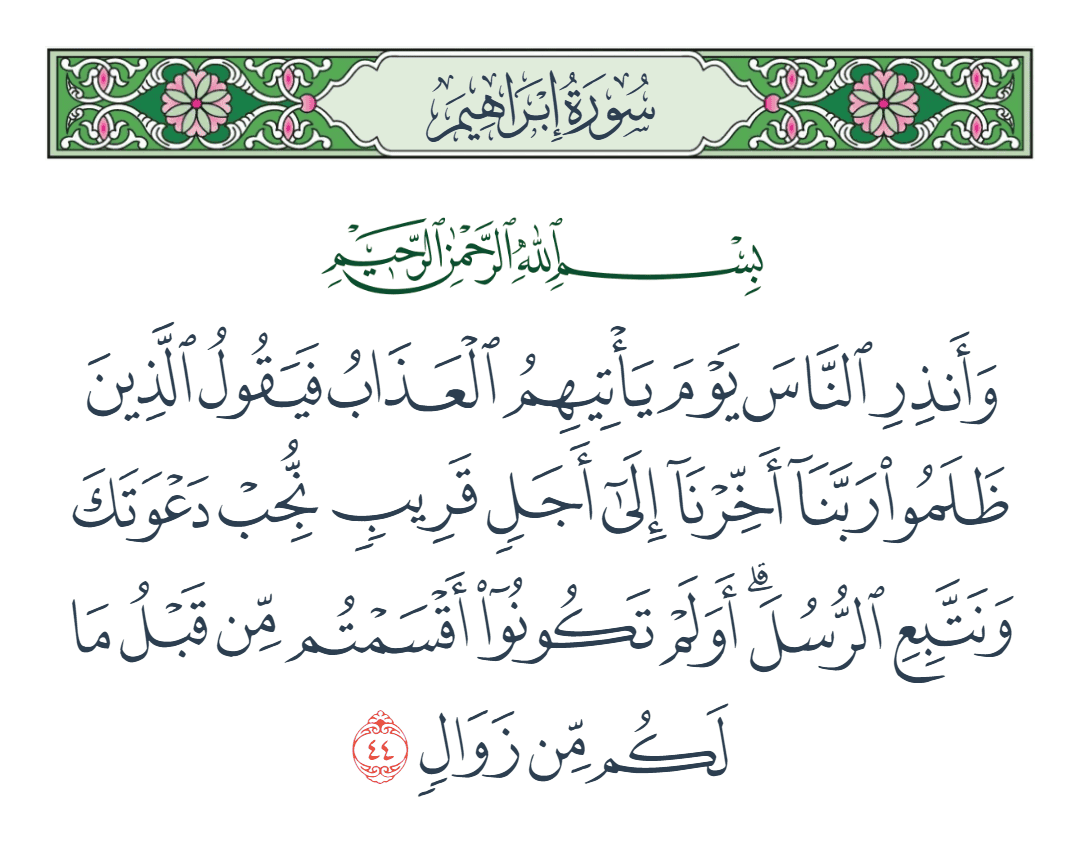 سُورَةُ إِبْرَاهِيمَ
بِسْمِ ٱللَّهِ ٱلرَّحْمَٰنِ ٱلرَّحِيمِ
وَأَنذِرِ ٱلنَّاسَ يَوْمَ يَأْتِيهِمُ ٱلْعَذَابُ فَيَقُولُ ٱلَّذِينَ
ظَلَمُوا۟ رَبَّنَآ أَخِّرْنَآ إِلَىٰٓ أَجَلٍ قَرِيبٍ نُّجِبْ دَعْوَتَكَ
وَنَتَّبِعِ ٱلرُّسُلَ ۗ أَوَلَمْ تَكُونُوٓا۟ أَقْسَمْتُم مِّن قَبْلُ مَا
لَكُم مِّن زَوَالٍ ٤٤